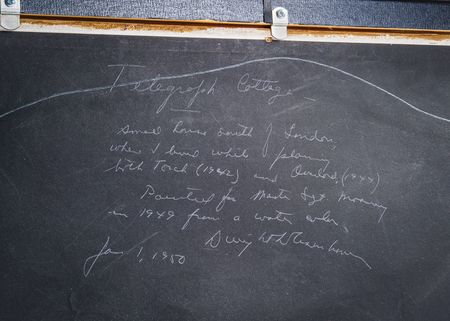 Telegraph Cottage
small house south of London,
where I lived while planning
both Torch (1942) and Overlord (1944)
Painted for Master Sgt. Moaney
in 1949 from a water color.
Dwight D. Eisenhower
Jan 1, 1950